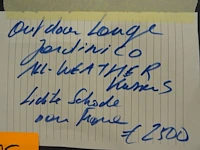 Outdoor Lounge
Jardinico
All-WEATHER
Kussens
Lichte Schade
aan Frame
€ 2500